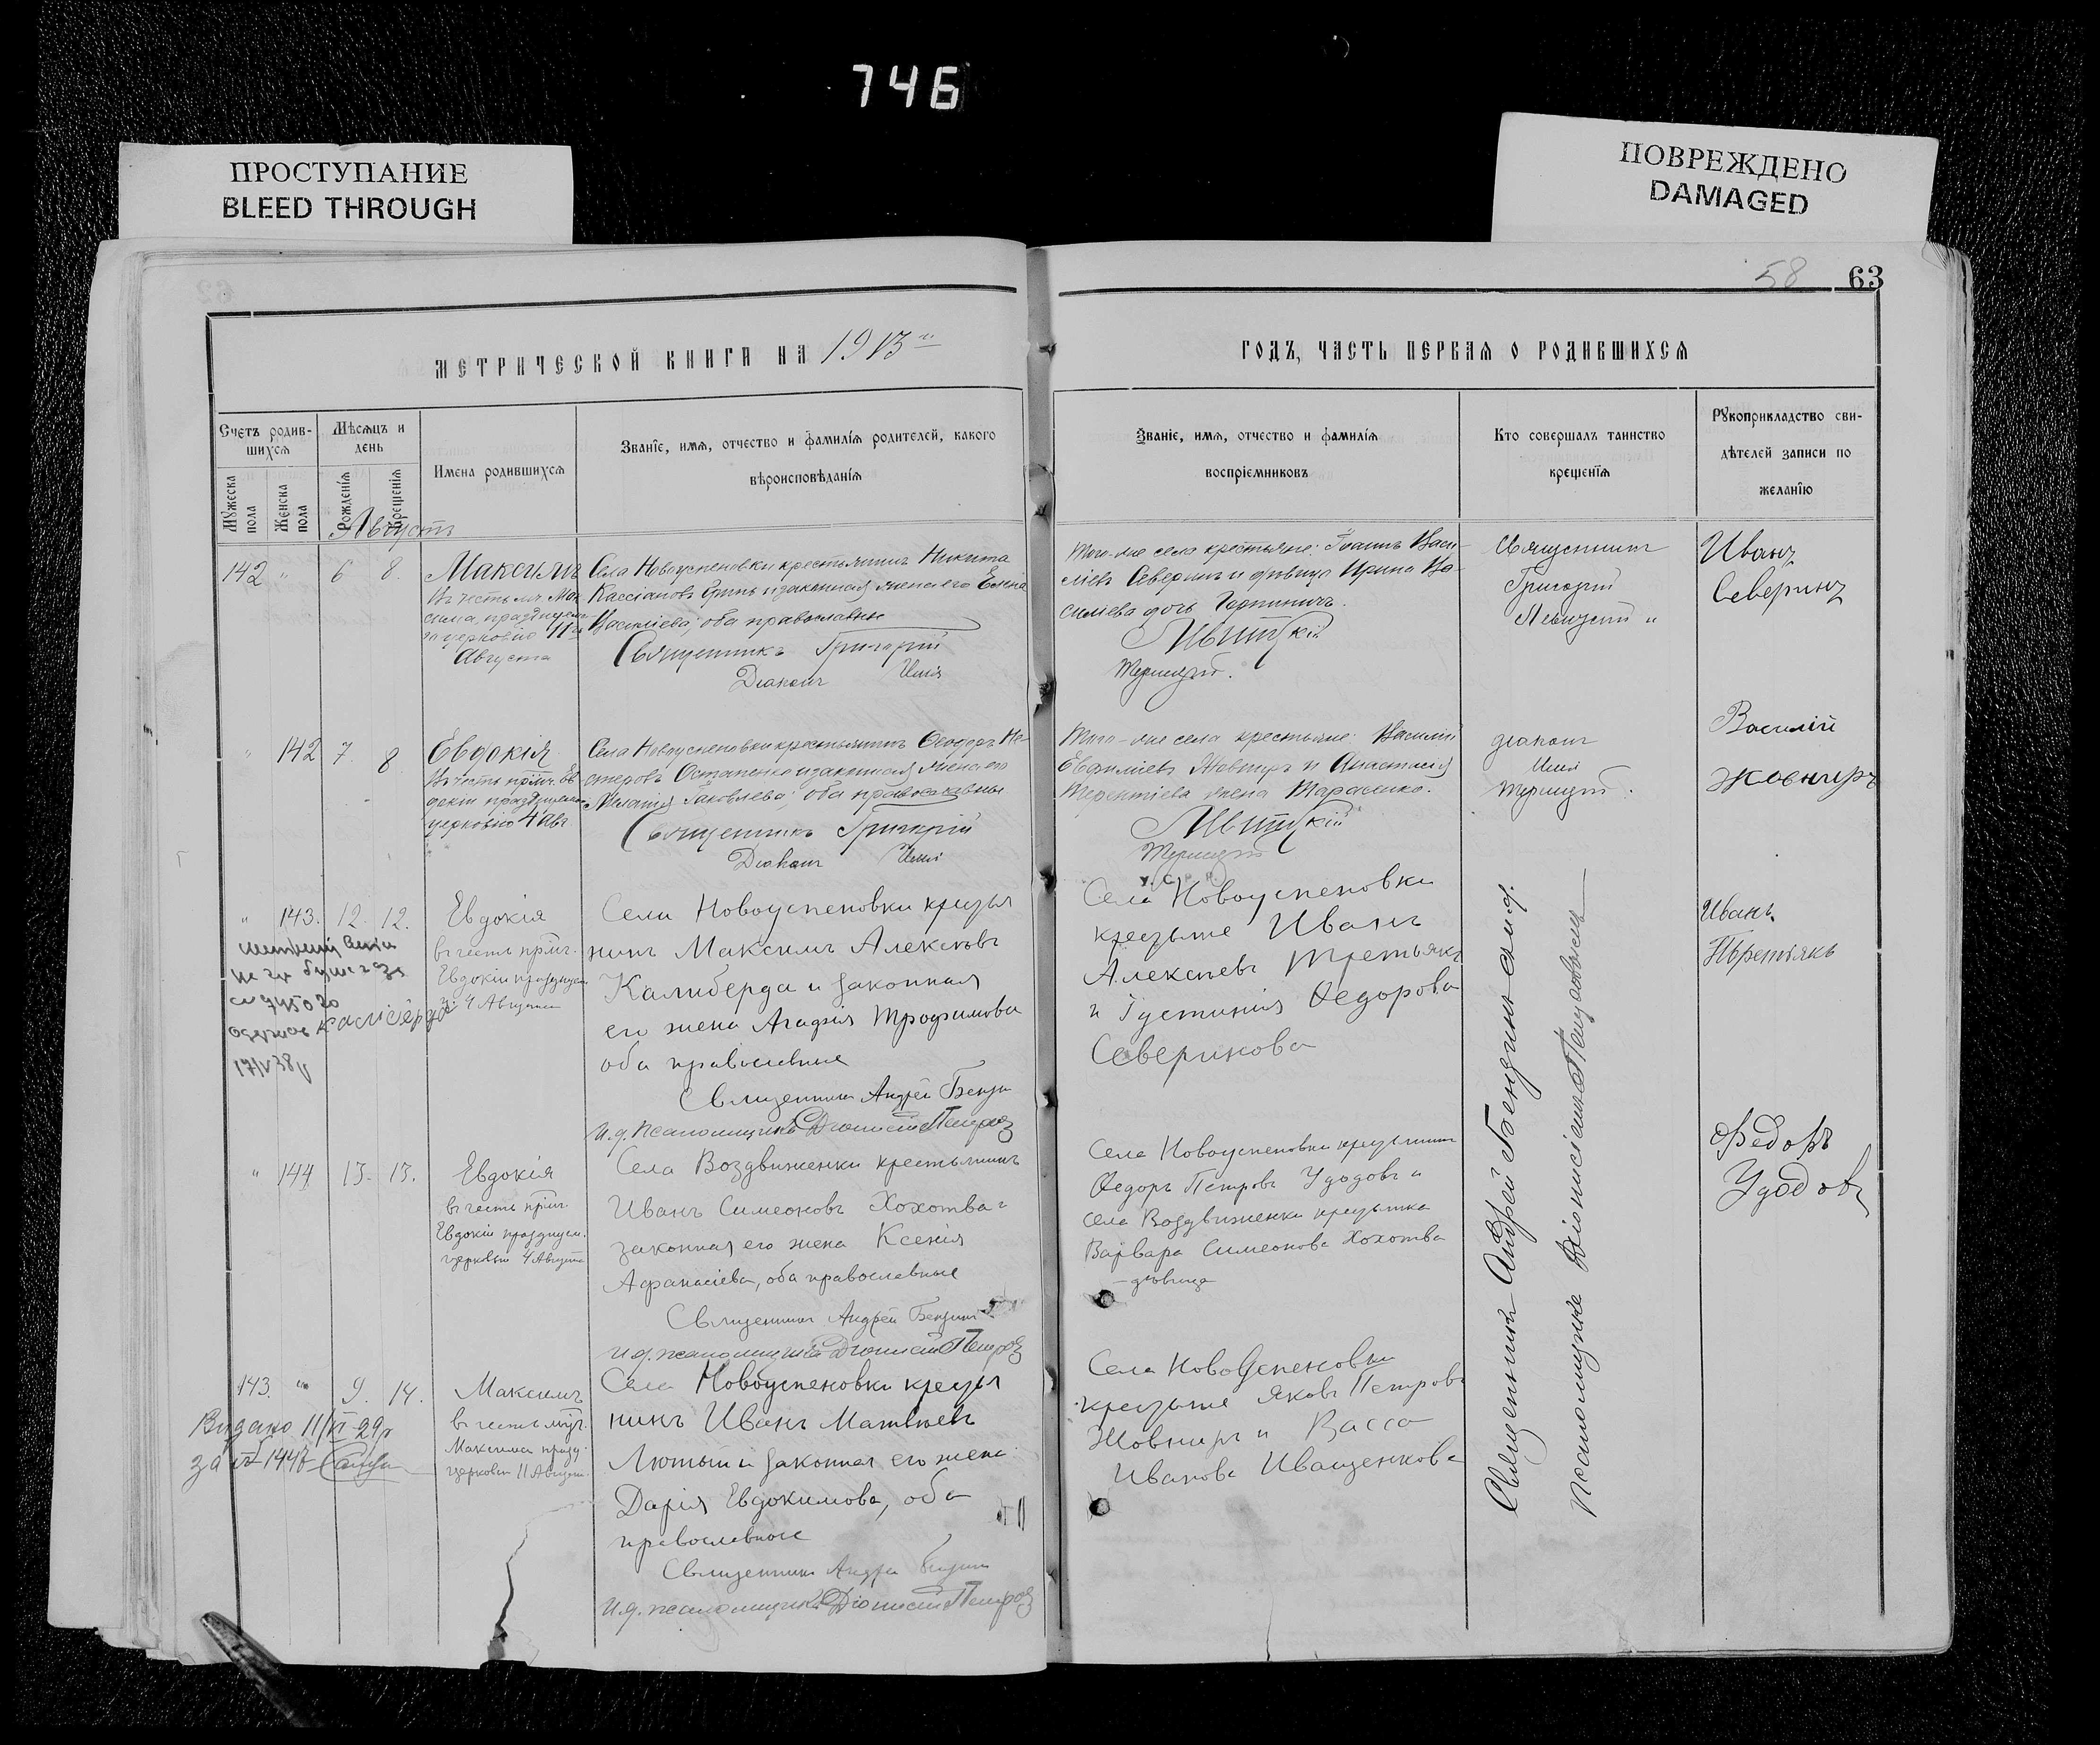 746
ПРОСТУПАНИЕ
BLEED THROUGH
ПОВРЕЖДЕНО
DAMAGED
58 63
МЕТРИЧЕСКОЙ КНИГИ НА 1913
ГОДЪ, ЧАСТЬ ПЕРВАЯ О РОДИВШИХСЯ
Счетъ родив-
шихся
Мужеска пола
Женска пола
Мѣсяцъ и
день
Рожденія
Крещенія
Имена родившихся
Званіе, имя, отчество и фамилія родителей, какого
вѣроисповѣданія
Званіе, имя, отчество и фамилія
воспріемниковъ
Кто совершалъ таинство
крещенія
Рукоприкладство сви-
дѣтелей записи по
желанію
Августъ
142 " 6 8.
Максимъ
въ честь мч. Мак-
сима, празднуем.
церковію 11го
Августа
Села Новоуспеновки крестьянинъ Никита
Кассіановъ и законная жена его Елена
Василіева, оба православные
Священникъ Григорій
Діаконъ Илія
Того-же села крестьяне: Іоаннъ Васи-
ліевъ Северинъ и дѣвица Ирина Ва-
силіева дочь
Левитскій
Священникъ
Григорій
Левицкій "
Иванъ
Северинъ
" 142 7. 8
Евдокія
въ честь прмч. Ев-
докіи празднуемой
церковію 4 Авг.
Села Новоуспеновки крестьянинъ Ѳеодоръ Не-
стеровъ Остапенко и законная жена его
Меланія Яковлева, оба православные
Священникъ Григорій
Діаконъ Илія
Того-же села крестьяне: Василій
Евфиміевъ Жовниръ и Анастасія
Терентіева жена Тарасенко.
Левитскій
діаконъ
Илія
Василій
Жовниръ
" 143. 12. 12.
Евдокія
въ честь прмч.
Евдокіи празднуем.
4 Августа
Села Новоуспеновки крестья
нинъ Максимъ Алексѣевъ
Калиберда и законная
его жена Агафія Трофимова
оба православные
Священникъ Андрей Бенди
И.д. псаломщика Діонисій Петров
Села Новоуспеновки
крестьяне Иванъ
Алексѣевъ Третьякъ
и Іустинія Ѳедорова
Северинова
Иванъ
Третьякъ
Калиберда
17/V 38
" 144 13. 13.
Евдокія
въ честь прмч.
Евдокіи празднуем.
церковью 4 Августа
Села Воздвиженки крестьянинъ
Иванъ Симеоновъ Хохотва и
законная его жена Ксенія
Афанасіева, оба православные
Священникъ Андрей Бендин
И.д. псаломщика Діонисій Петров
Села Новоуспеновки крестьянинъ
Ѳедоръ Петровъ Удодовъ и
села Воздвиженки крестьянка
Варвара Симеонова Хохотва
- дѣвица
Федоръ
Удодовъ
143. " 9. 14.
Видано 11/VI-29р
за № 1447
Максимъ
въ честь муч.
Максима празд.
церковью 11 Август.
Села Новоуспеновки крестья
нинъ Иванъ Матвѣевъ
Лютый и законная его жена
Дарія Евдокимова, оба
православные
Священникъ Андрей
И.д. псаломщика Діонисій Петров
Села Новоуспеновки
крестьяне Яковъ Петровъ
Жовниръ и Васса
Иванова Иващенкова
Священникъ Андрей
Псаломщикъ Діонисій